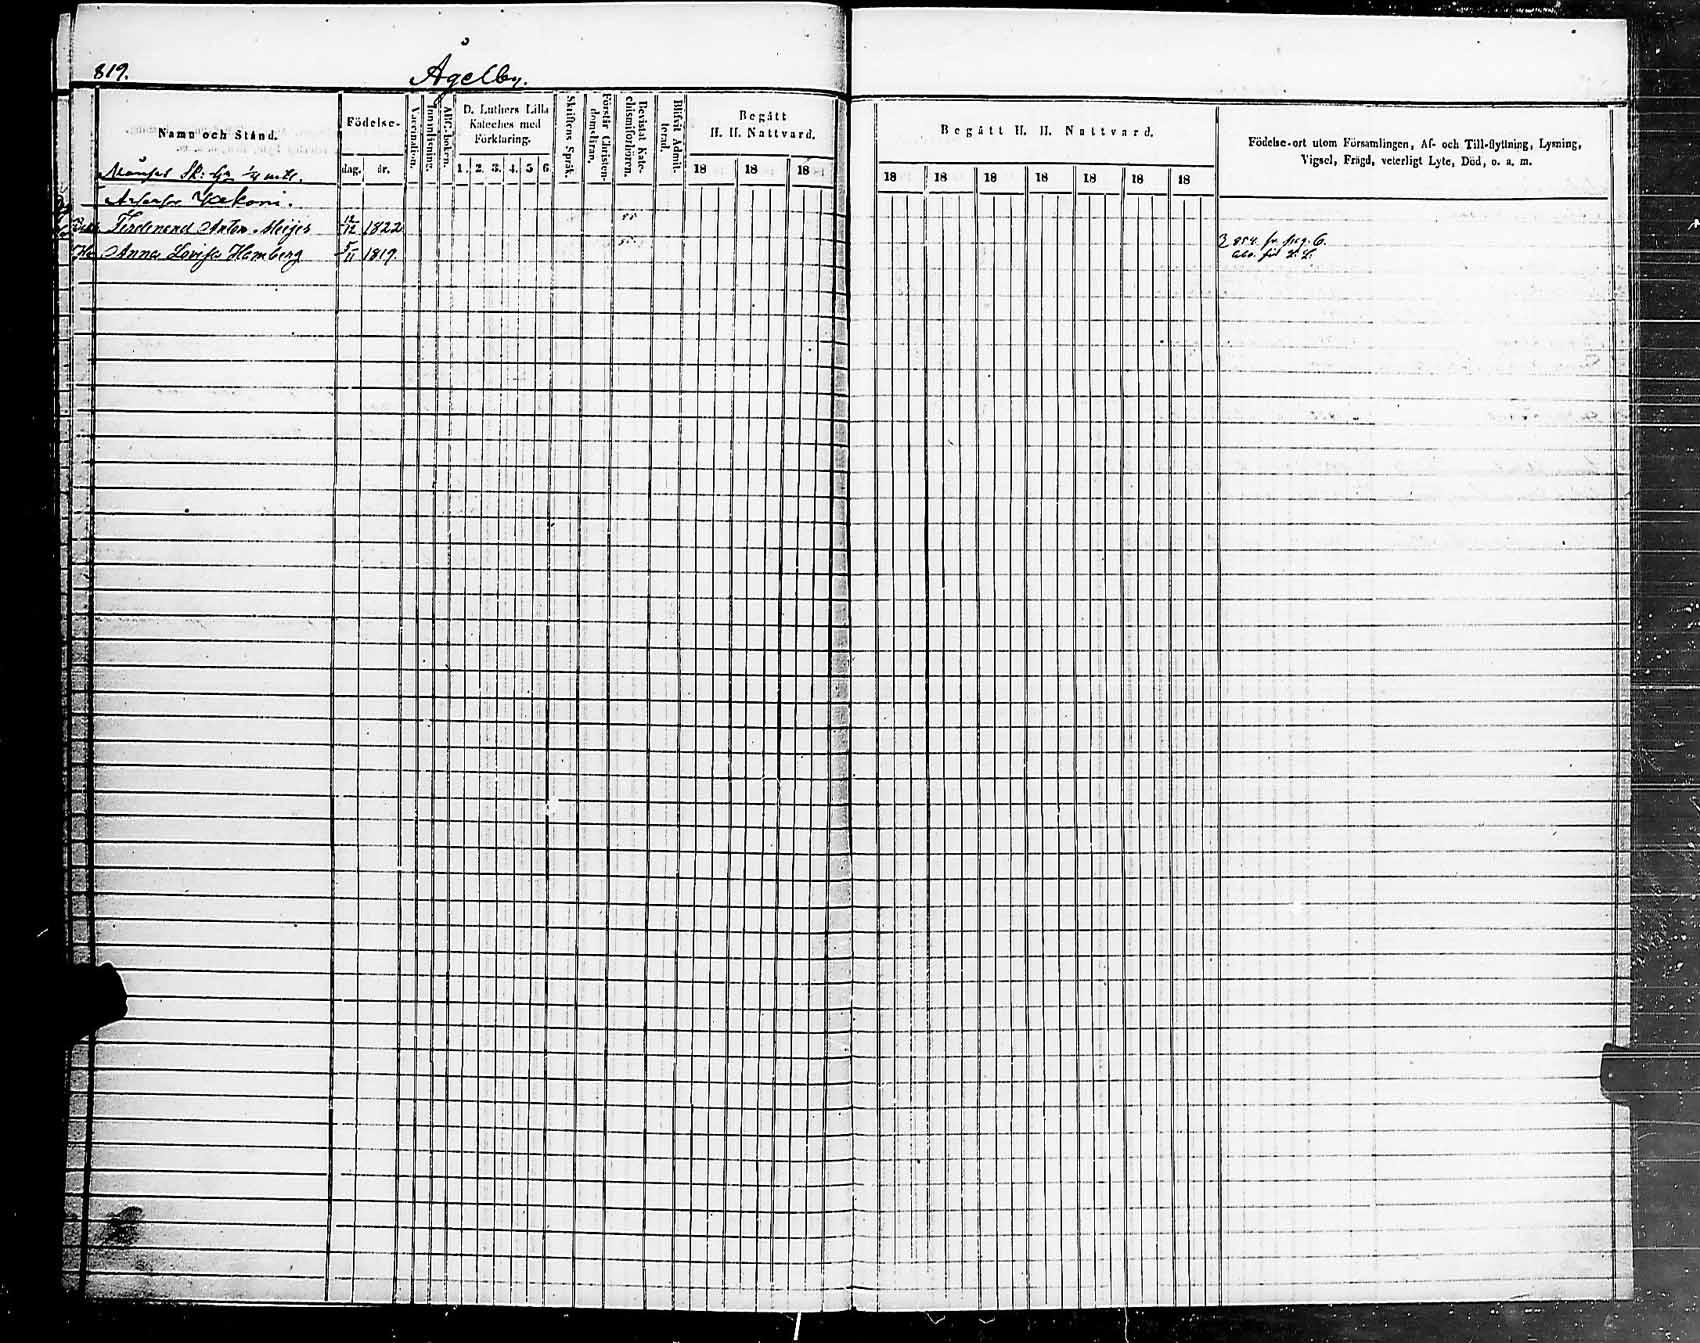 819.
Ågelby.
Namn och Stånd.
Födelse-
dag.
år.
Vaccination.
Innanläsning.
ABC-boken.
D. Luthers Lilla
Kateches med
Förklaring.
1. 2. 3. 4. 5 6
Skriftens Språk.
Förstår Christen-
domsläran.
Bevistat Kate-
chismiförhören.
Blifvit Admit-
terad.
Begått
H. H. Nattvard.
18 18 18
Begått H. H. Nattvard.
18 18 18 18 18 18 18
Födelse-ort utom Församlingen, Af- och Till-flyttning, Lysning,
Vigsel, Frägd, veterligt Lyte, Död, o. a. m.
Månsas Sk:
Ferdinand Anton Meijer 12/12 1822
Anna Lovisa Hamberg 5/11 1819.
854. fr. pag. 6.